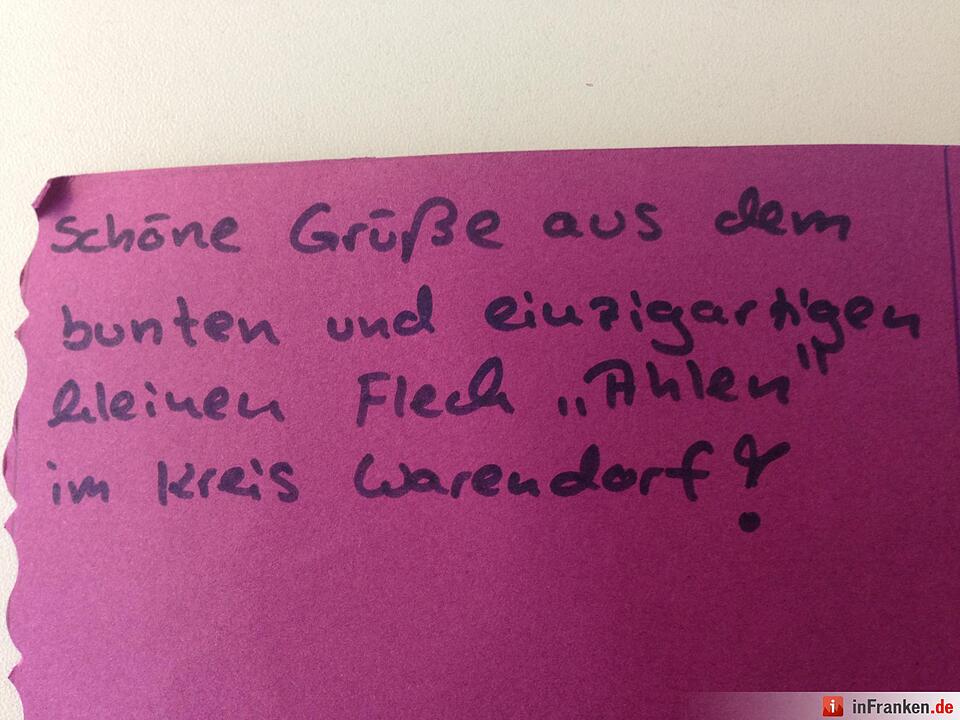 Schöne Grüße aus dem
bunten und einzigartigen
kleinen Fleck „Ahlen"
im Kreis Warendorf!
inFranken.de